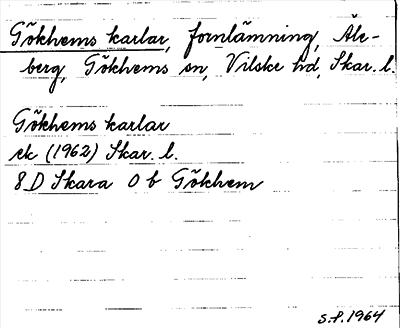 Gökhems karlar, fornlämning, Åle-
berg, Gökhems sn, Vilske hd, Skar. l.
Gökhems karlar
ek (1962) Skar. l.
8 D Skara 0 b Gökhem
S.P. 1964